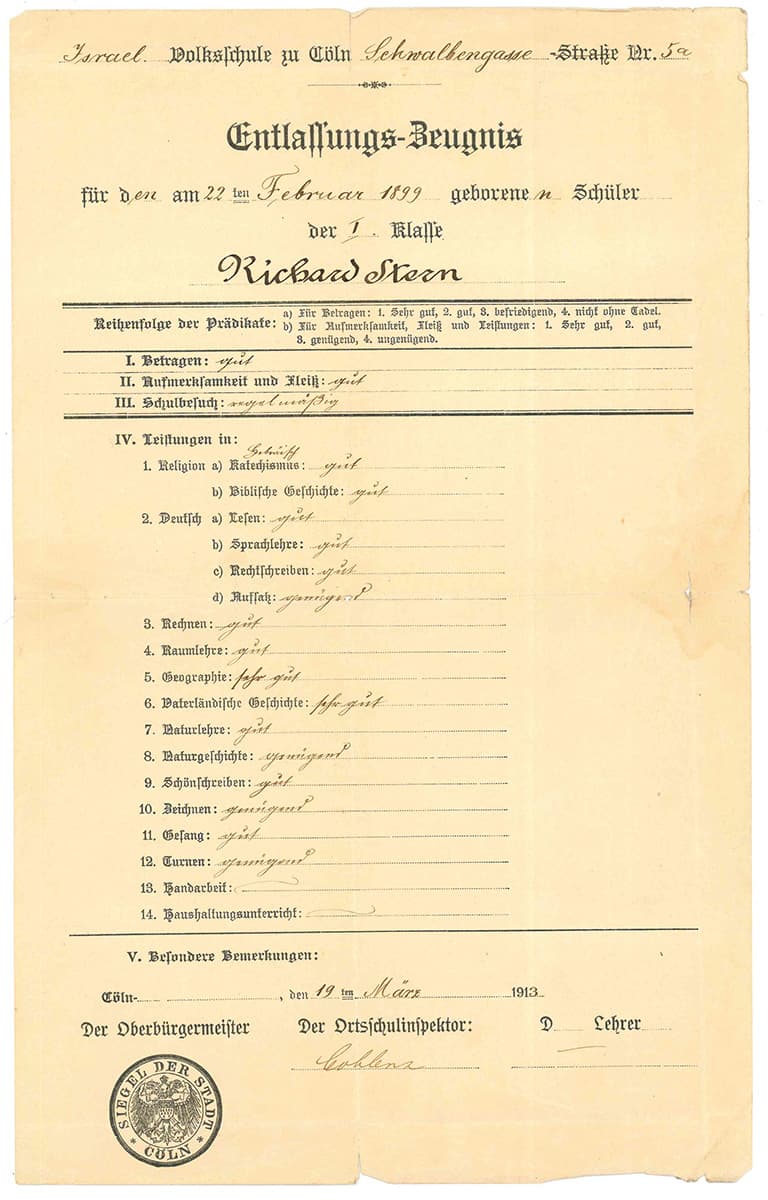 Israel. Volksschule zu Cöln Schwalbengasse -Straße Nr. 5a
Entlassungs-Zeugnis
für den am 22ten Februar 1899 geborenen Schüler
der I. Klasse
Richard Stern
Reihenfolge der Prädikate: a) Für Betragen: 1. Sehr gut, 2. gut, 3. befriedigend, 4. nicht ohne Tadel.
b) Für Aufmerksamkeit, Fleiß und Leistungen: 1. Sehr gut, 2. gut,
3. genügend, 4. ungenügend.
I. Betragen: gut
II. Aufmerksamkeit und Fleiß: gut
III. Schulbesuch: regelmäßig
IV. Leistungen in:
Hebräisch
1. Religion a) Katechismus: gut
b) Biblische Geschichte: gut
2. Deutsch a) Lesen: gut
b) Sprachlehre: gut
c) Rechtschreiben: gut
d) Aufsatz: genügend
3. Rechnen: gut
4. Raumlehre: gut
5. Geographie: sehr gut
6. Vaterländische Geschichte: sehr gut
7. Naturlehre: gut
8. Naturgeschichte: genügend
9. Schönschreiben: gut
10. Zeichnen: genügend
11. Gesang: gut
12. Turnen: genügend
13. Handarbeit:
14. Haushaltungsunterricht:
V. Besondere Bemerkungen:
Cöln- , den 19ten März 1913
Der Oberbürgermeister Der Ortsschulinspektor: D Lehrer
Coblenz
SIEGEL DER STADT
CÖLN